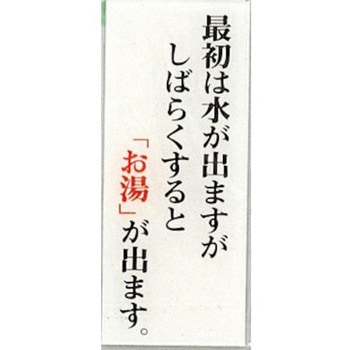 最初は水が出ますが
しばらくすると
「お湯」が出ます。